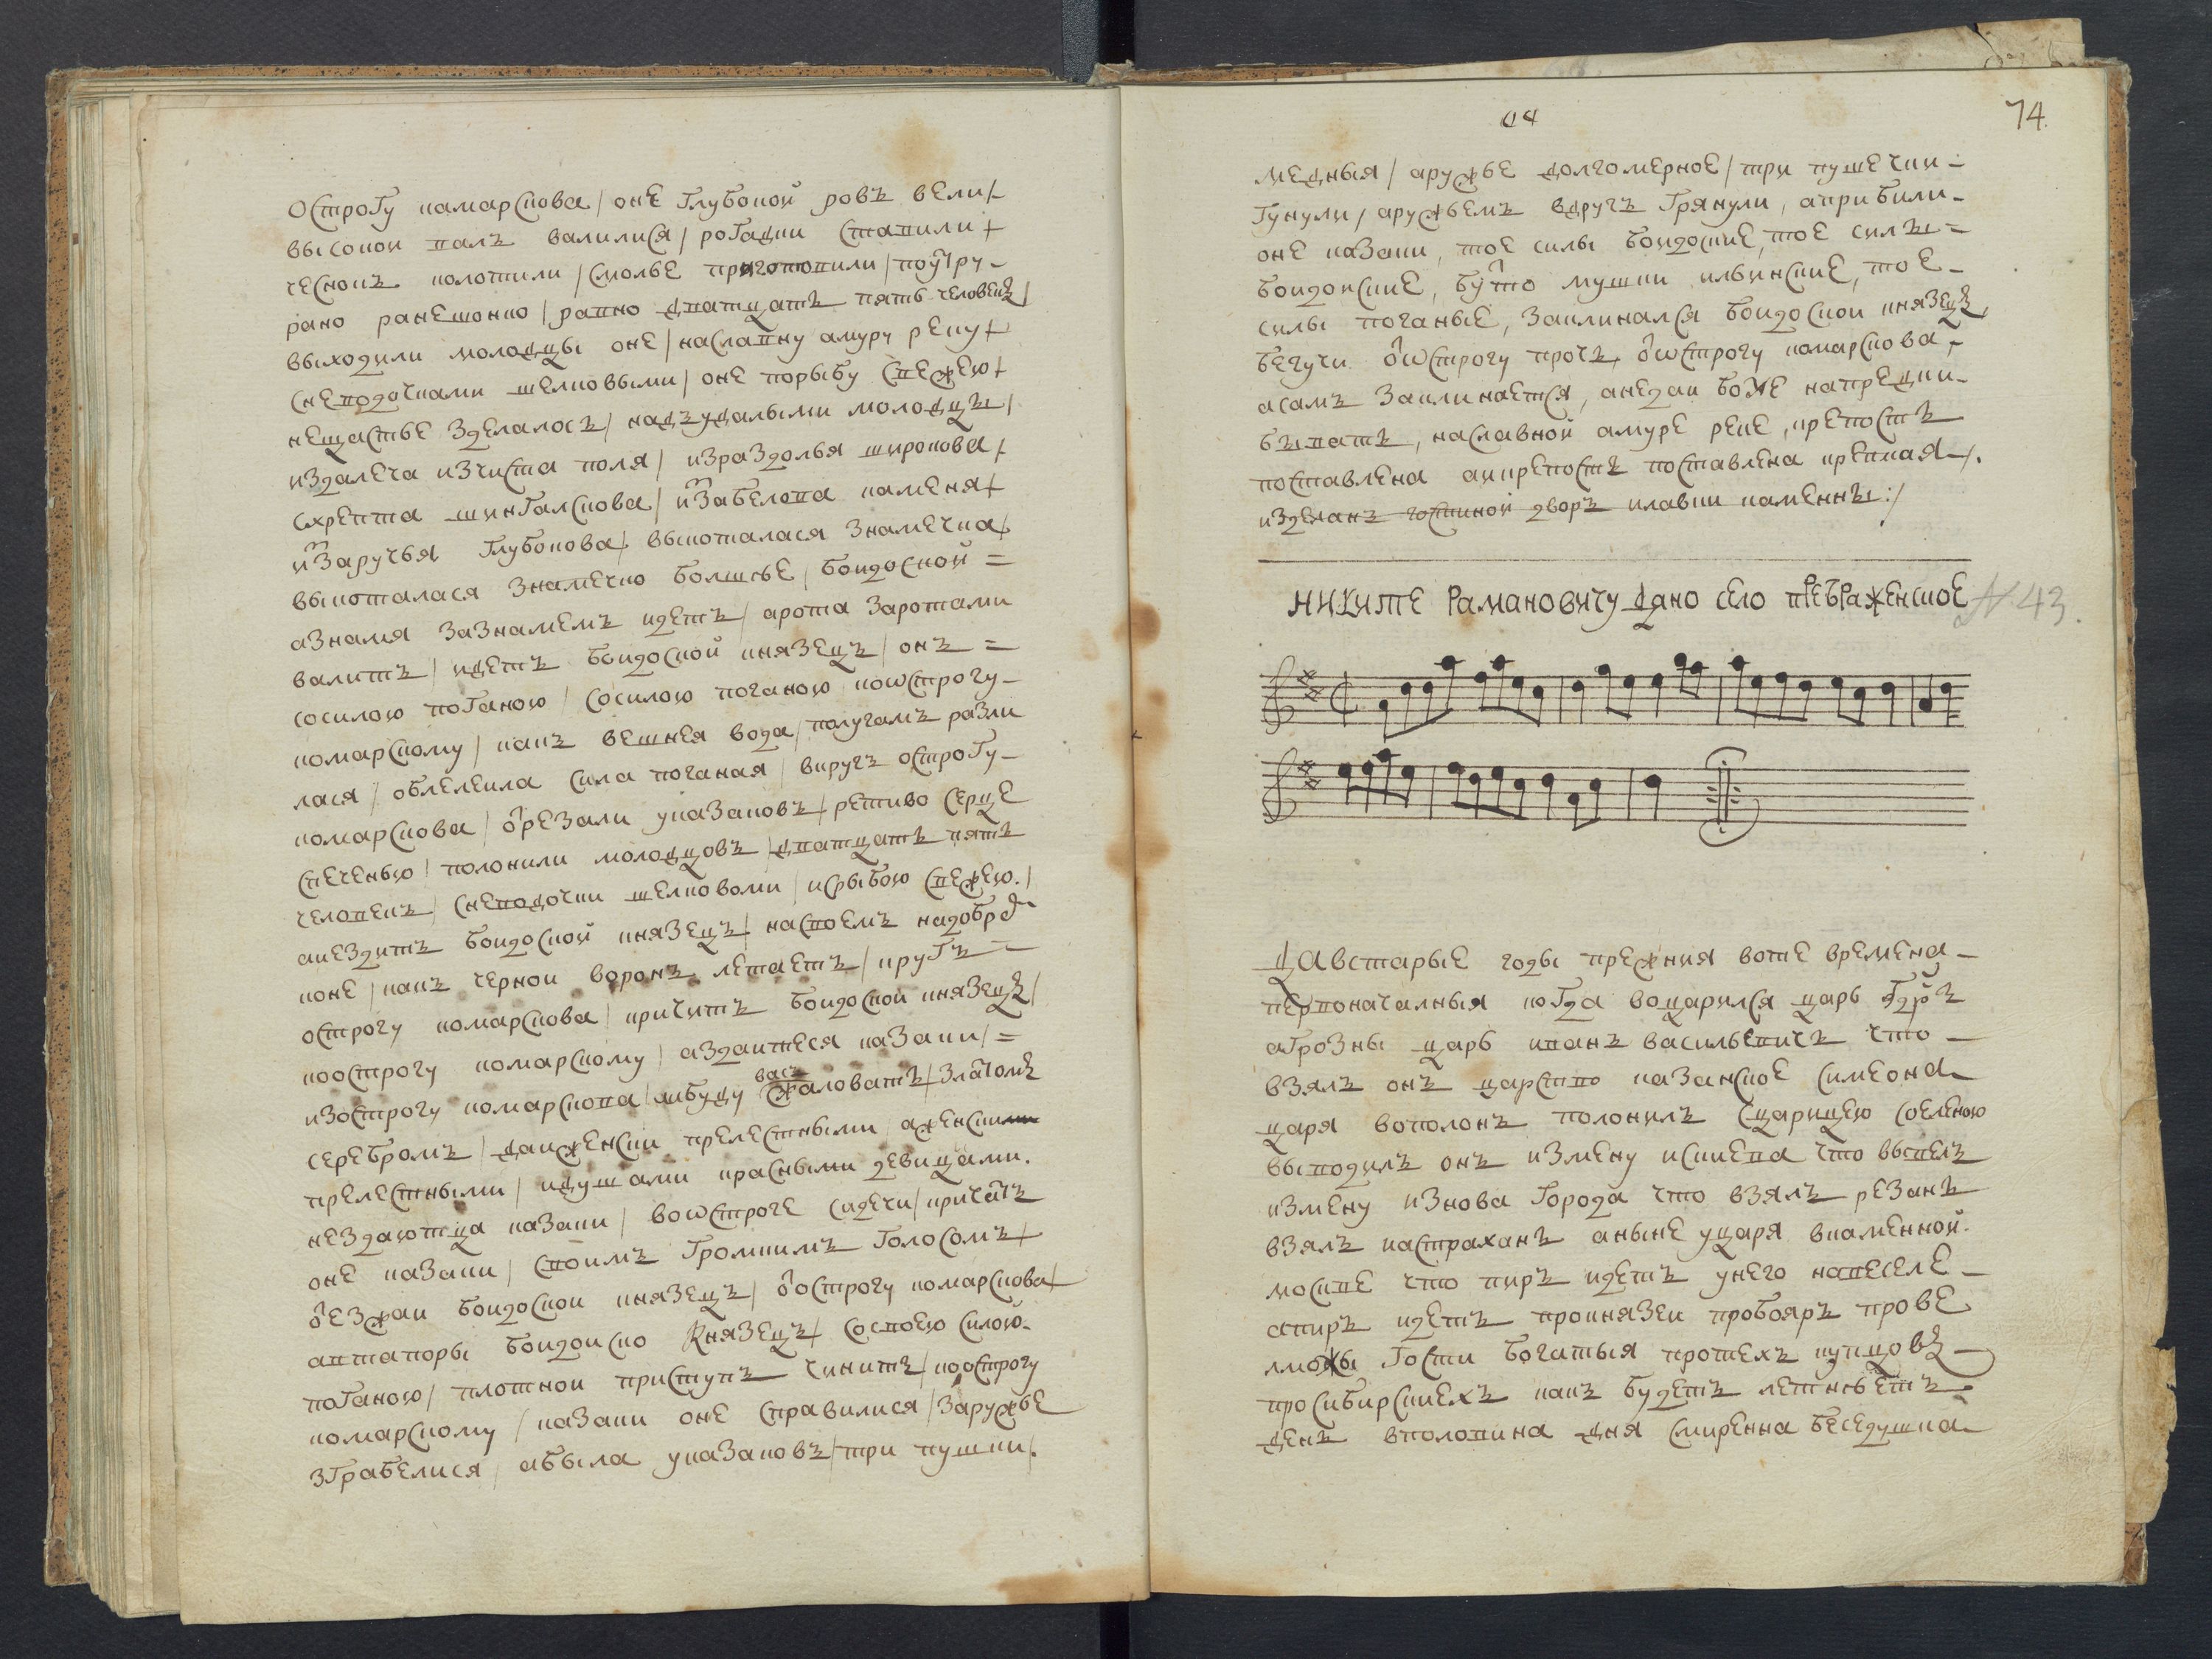 острогу камарскова / оне глубокой ровъ вели /
высокои валъ валилися / рогатки ставили /
чеснокъ колотили / смолье приготовили / поутру -
рано ранешонко / равно дватцать пять человекъ /
выходили молодцы оне / наславну амуру реку /
сневодочками шелковыми / оне порыбу свежею /
нещастье зделалосъ / надъудалыми молодцы /
издалеча изчиста поля / израздолья широкова /
схрепта шингалскова / иззабелова каменя /
иззаручья глубокова / выкоталася знамечка /
выкоталася знамечко болшее / боидоской =
азнамя зазнамемъ идетъ / арота заротами
валитъ / идетъ боидоской князецъ / онъ =
сосилою поганою / сосилою поганою коѡстрогу -
комарскому / какъ вешнея вода / полугамъ разли
лася / облелеила сила поганая / вкругъ острогу -
комарскова / ѿрезали указаковъ / ретиво серце
спеченью / полонили молодцовъ / дватцать пять
человекъ / сневодочки шелковоми / исрыбою свежею. /
аиездитъ боидоской князецъ / насвоемъ надобре
коне / какъ черной воронъ летаетъ / кругъ =
острогу комарскова / кричитъ боидоской князецъ /
коострогу комарскому / аздаитеся казаки / =
изострогу комарскова / ябуду васъ жаловать / златомъ
серебромъ / даиженски прелестными аженски
прелестными / идушами красными девицами.
нездаютца казаки / воѡстроге сидечи / кричатъ
оне казаки / своимъ громкимъ голосомъ /
ѿезжаи боидоской князецъ / ѿострогу комарскова /
автапоры боидоиско князецъ / сосвоею силою -
поганою / плотной приступъ чинитъ / коострогу
комарскому / казаки оне справилися / заружье
зграбелися / абыла указаковъ / три пушки /.
74
медныя / аружье долгомерное / три пушечки -
гунули / аружьемъ вдругъ грянули, априбили -
оне казаки, тое силы боидоские, тое силы =
боидоиские, будто мушки ильинские, тое -
силы поганые, заклинался боидоской князецъ,
бегучи ѿѡстрогу прочь, ѿѡстрогу комарскова,
асамъ заклинается, анедаи боже напредки -
бывать, наславной амуре реке, крепость
поставлена аикрепость поставлена крепкая /.
изделанъ гостиной дворъ илавки каменны :/
никите рамановичу дано село преѡбраженское № 43.
Давстарые годы прежния воте времена -
первоначалныя когда воцарился царь гдрь
агрозны царь иванъ васильевичъ что -
взялъ онъ царство казанское симеона
царя вополонъ полонилъ сцарицею соеленою
выводилъ онъ измену искиева что вывелъ
измену изнова города что взялъ резань
взялъ иастрахань аныне уцаря вкаменной.
москве что пиръ идетъ унего навеселе -
апиръ идетъ прокнязеи пробояръ прове
лможы гости богатыя протехъ купцовъ -
просибирскиехъ какъ будетъ летнеетъ
день вполовина дня смиренна беседушка